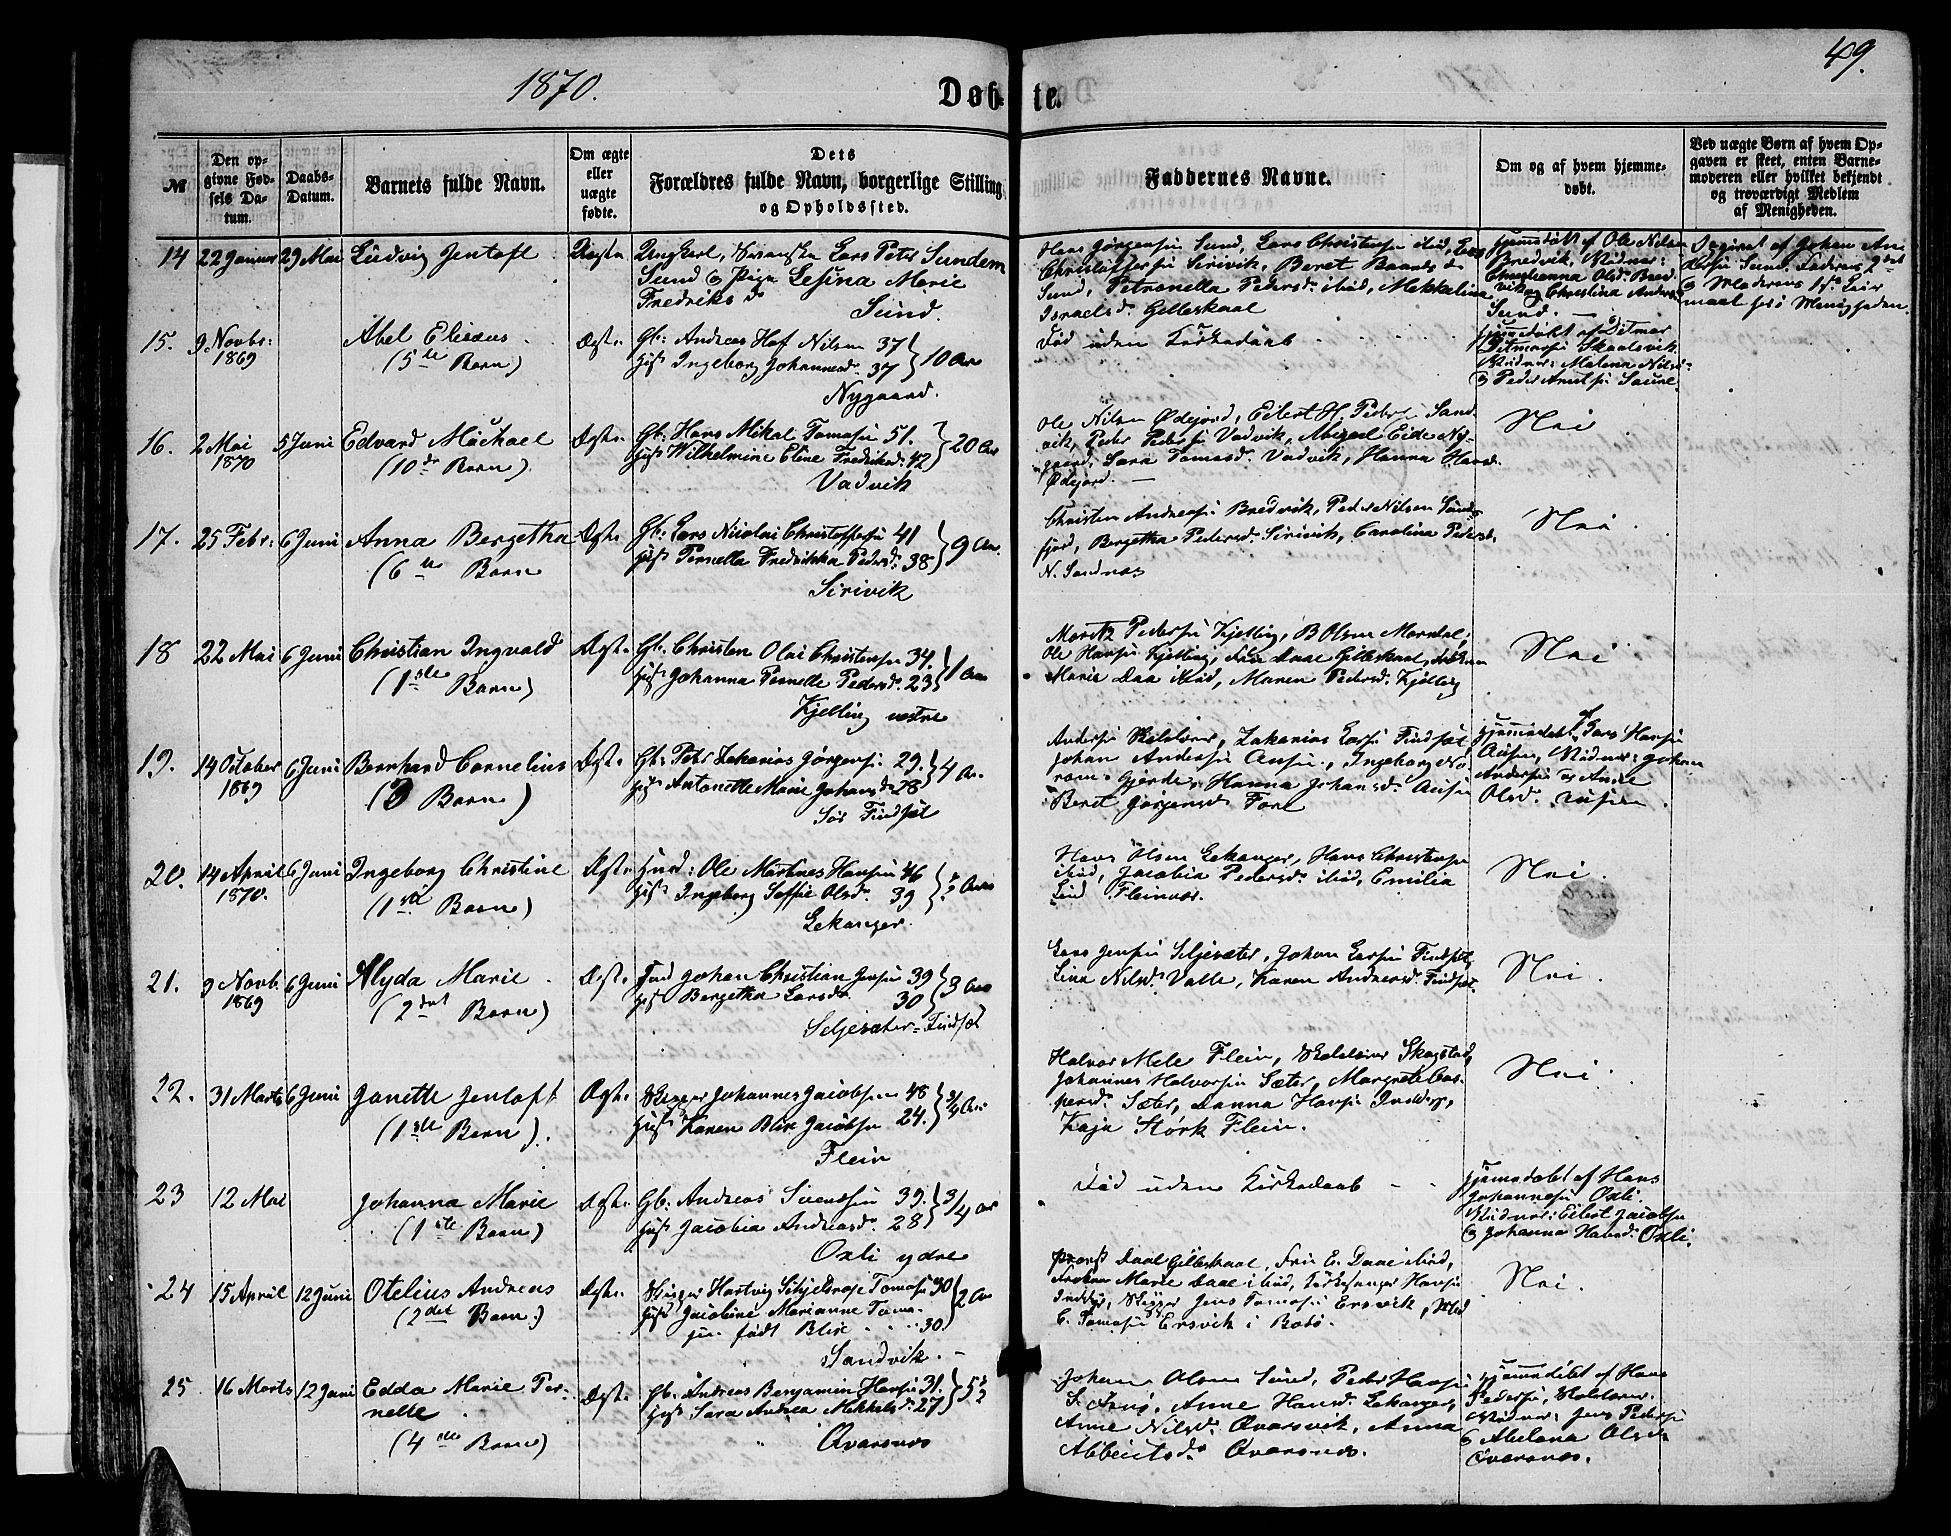 1870.
Døb-
te.
49.
№
Den op-
givne Fød-
sels Da-
tum.
Daabs-
Datum.
Barnets fulde Navn.
Om ægte
eller
uægte
fødte.
Dets
Forældres fulde Navn, borgerlige Stilling
og Opholdssted.
Faddernes Navne.
Om og af hvem hjemme-
døbt.
Ved uægte Børn af hvem Op-
gaven er skeet, enten Barne-
moderen eller hvilket bekjendt
og troværdigt Medlem
af Menigheden.
14 22 Januar 29 Mai Ludvig Jentoft
Ungkarl, Svenske Lars Peter Sundem
Sund & Pige Lesina Marie
Fredriksd.
Sund.
Hans Jørgensen Sund, Lars Christensen ibid, Lars
Christoffersen Sirivik, Beret Baards d.
Sund, Petronella Pedersd. ibid, Mekkaline
Israelsd. Gilleskaal
hjemmedøbt af Ole Nilsen
Bredvik, Vidner:
Christianna Olsd. Bred-
vik og Christina Andersd.
Sund.
Opgivet af Johan An-
dersen Sund. Faderens 2det
& Moderens 1ste Leier-
maal
15. 9. Novbr: Abel Elisæus
1869 (5te Barn)
Ægte
Gb: Andreas Hof Nilsen 37
Hust Ingeborg Johannesd. 37 } 10 Aar
Nygaard.
Død uden Kirkedaab
hjemmedøbt af Ditmar
Ditmarsen Skaalsvik
Vidner: Malena Nilsd.
& Peder
16. 2 Mai 5 Juni Edvard Michael
1870 (10de Barn)
Ægte
Gb: Hans Mikal Tomasen 51.
Hust Wilhelmine Eline Fredriksd. 42 } 20 Aar
Vadvik
Ole Nilsen Ødejord, Eilert H. Pedersen Sand-
vik, Peder Pedersen Vadvik, Abigael Eide Ny-
gaard, Sara Tomasd. Vadvik, Hanna Hansd.
Ødejord.
Nei
17. 25 Febr: 6 Juni Anna Bergetha
(6te Barn
Ægte
Gb: Lars Nicolai Christoffersen 41
Hust Pernella Fredrikka Pedersd. 38 } 9 Aar.
Sirivik
Christen Andreasen Bredvik, Peder Nilsen
fjord, Bergetha Pedersd. Sirivik, Carolina Pedersd.
N. Sandnæs
Nei
18 22 Mai 6 Juni Christian Ingvald
(1ste Barn)
Ægte
Gb. Christen Olai Christensen 34.
Hust Johanna Pernelle Pedersd. 23 } 1 Aar
Kjelling vestre
Moritz Pedersen Kjelling, B Olsen Mordal,
Ole Hansen Kjelling, Fru Daae Gilleskaal, Frøken
Marie Daa ibid, Maren Pedersd. Kjelling
Nei
19. 14 October 6 Juni Bernhard Cornelius
1869 (3 Barn)
Ægte
Gb: Peter Zakarias Jørgensen 29.
Hust Antonette Marie Johansd. 28 } 4 Aar.
Sør Findset
Andersen Skolelærer, Zakarias Larsen Findset,
Johan Andersen Ausen, Ingeborg
Gjerde, Hanna Johansd. Ausen
Beret Jørgensd. Fore
hjemmedøbt af Lars Hansen
Ausen, Vidner: Johan
Andersen og Ane
Olsd. Ausen.
20. 14 April 6 Juni Ingeborg Christine
1870. (1ste Barn)
Ægte
Hust Ingeborg Soffie Olsd. 39
Ole Martines Hansen 46
Lekanger.
Hans Olsen Lekanger, Hans Christensen
ibid, Jacobia Pedersd. ibid, Emilia
Lind Fleinvær.
Nei.
21. 9 Novb. 6 Juni Alyda Marie
1869 (2det Barn)
Ægte
Johan Christian Jensen 39
Hust Bergetha Larsd. 30 } 3 Aar
Seljesæter-Findset
Lars Jensen Seljesæter, Johan Larsen Findset,
Lina Nilsd. Valle, Karen Andreasd. Findset.
Nei.
22. 31 Marts 6 Juni Janette Jentoft
(1ste Barn).
Ægte
Skipper Johannes Jacobsen 48
Hust Karen Blix Jacobsen 24. } 3/4 Aar
Flein
Halvor Mele Flein, Skolelærer Skogstad,
Johannes Halvorsen Sæter, Margrete Cas-
persd. Sæter, Danna Hansen Inddyr,
Kaja Størk Flein.
Nei
23 12 Mai Johanna Marie
(1ste Barn)
Ægte
Gb: Andreas Sivertsen 39.
Hust Jacobia Andreasd. 28 } 3/4 Aar
Oxli ydre
Død uden Kirkedaab
hjemmedøbt af Hans
Johannesen Oxli.
Vidner: Eilert Jacobsen
& Johanna Hansd. Oxli.
24 15 April 12 Juni Otelius Andreas
(2det Barn.)
Ægte
Skipper Hartvig Schjelderup Tomasen 30
Hust Jacobine Marianne Toma-
sen født Blix 30. } 2 Aar
Sandvik.
Provst Daae Gilleskaal, Fru E. Daae ibid,
Frøken Marie Daae ibid, Kirkesanger Hansen
Inddyr, Skipper Jens Tomasen Ersvik,
E. Tomasen Ersvik i Bodø.
Nei.
25 16 Marts 12 Juni Edda Marie Per-
nelle
(4de Barn)
Ægte
Gb. Andreas Benjamin Hansen 31.
Hust Sara Andrea Mekkelsd. 27 } 5
Qvarsnæs
Johan Olsen Sund, Peder Hansen
S. Arnø, Anne Hansd. Lekanger,
Anne Nilsd. Qvarsvik, Anna
Albertsd. Qvarsnæs.
hjemmedøbt af Hans
Pedersen, Skolelærer.
Vidner: Jens Pedersen
& Abelona Olsd.
Qvarsnæs.